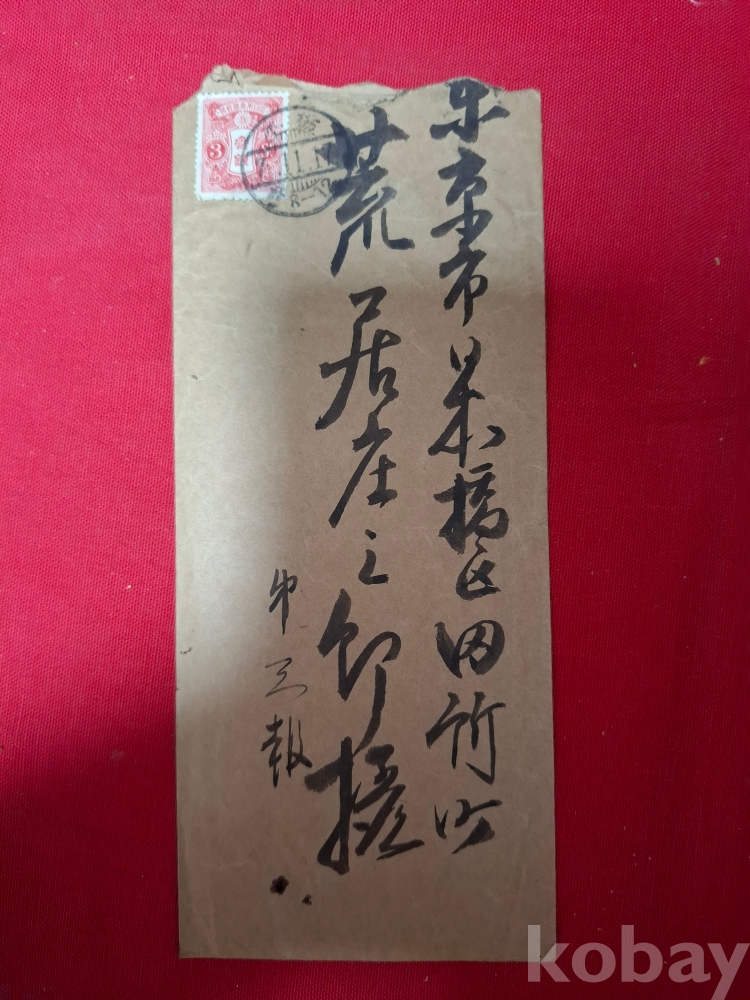 東京市日本橋区田所町
荒居庄之助様
第三報
3
kobay